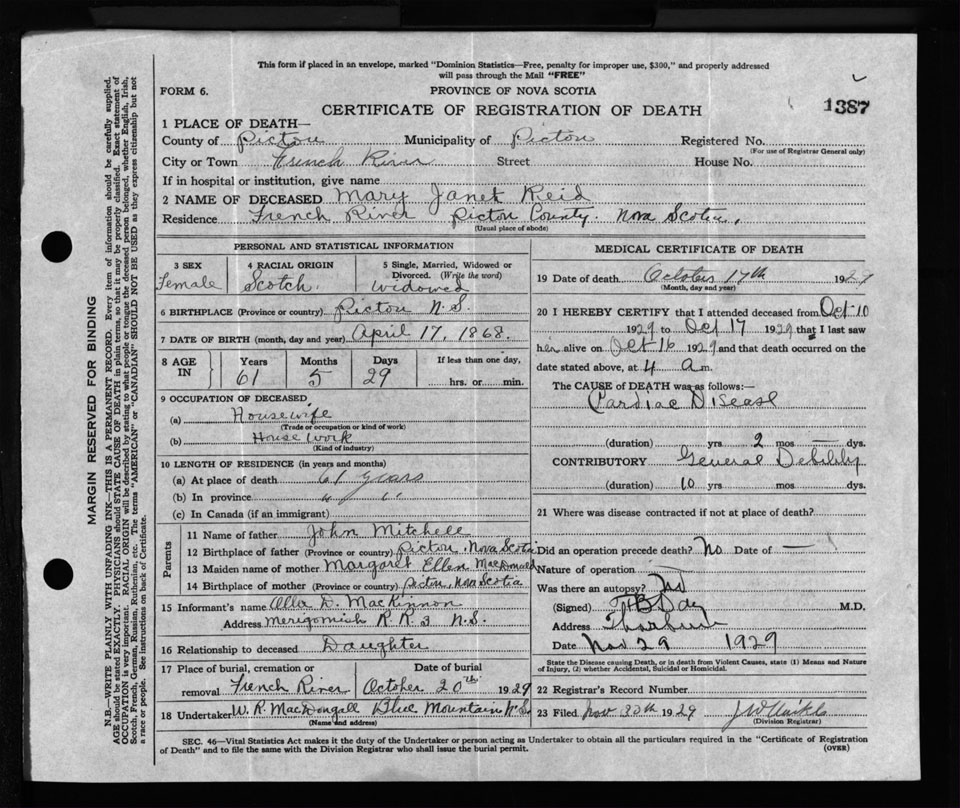 This form if placed in an envelope, marked "Dominion Statistics—Free, penalty for improper use, $300," and properly addressed
will pass through the Mail "FREE"
FORM 6.
PROVINCE OF NOVA SCOTIA
CERTIFICATE OF REGISTRATION OF DEATH
1387
1 PLACE OF DEATH—
County of Pictou Municipality of Pictou Registered No.
(For use of Registrar General only)
City or Town French River Street House No.
If in hospital or institution, give name
2 NAME OF DECEASED Mary Janet Reid
Residence French River Pictou County. Nova Scotia.
(Usual place of abode)
PERSONAL AND STATISTICAL INFORMATION
3 SEX
Female
4 RACIAL ORIGIN
Scotch
5 Single, Married, Widowed or
Divorced. (Write the word)
Widowed
6 BIRTHPLACE (Province or country) Pictou N.S.
7 DATE OF BIRTH (month, day and year) April 17, 1868.
8 AGE IN
Years Months Days
61 5 29
If less than one day,
hrs. or min.
9 OCCUPATION OF DECEASED
(a) Housewife
(Trade or occupation or kind of work)
(b) House work
(Kind of industry)
10 LENGTH OF RESIDENCE (in years and months)
(a) At place of death 61 years
(b) In province " "
(c) In Canada (if an immigrant)
Parents
11 Name of father John Mitchell
12 Birthplace of father (Province or country) Pictou, Nova Scotia
13 Maiden name of mother Margaret Ellen MacDonald
14 Birthplace of mother (Province or country) Pictou, Nova Scotia
15 Informant's name D. MacKinnon
Address Merigomish R.R.3 N.S.
16 Relationship to deceased Daughter
17 Place of burial, cremation or
removal French River
Date of burial
October 20th 1929
18 Undertaker W. R. MacDougall Blue Mountain N.S.
(Name and address)
MEDICAL CERTIFICATE OF DEATH
19 Date of death October 17th 1929
(Month, day and year)
20 I HEREBY CERTIFY that I attended deceased from Oct 10
1929 to Oct 17 1929 that I last saw
her alive on Oct 16 1929 and that death occurred on the
date stated above, at 4 a m.
The CAUSE of DEATH was as follows:—
Cardiac Disease
(duration) yrs 2 mos — dys.
CONTRIBUTORY General Debility
(duration) 10 yrs mos dys.
21 Where was disease contracted if not at place of death?
Did an operation precede death? No Date of —
Nature of operation
Was there an autopsy? No
(Signed) Day M.D.
Address Thorburn
Date Nov 29 1929
State the Disease causing Death, or in death from Violent Causes, state (1) Means and Nature
of Injury, (2) whether Accidental, Suicidal or Homicidal.
22 Registrar's Record Number
23 Filed Nov 30th 1929
(Division Registrar)
SEC. 46—Vital Statistics Act makes it the duty of the Undertaker or person acting as Undertaker to obtain all the particulars required in the "Certificate of Registration
of Death" and to file the same with the Division Registrar who shall issue the burial permit.
(OVER)
MARGIN RESERVED FOR BINDING
N.B.—WRITE PLAINLY WITH UNFADING INK—THIS IS A PERMANENT RECORD. Every item of information should be carefully supplied.
AGE should be stated EXACTLY. PHYSICIANS should STATE CAUSE OF DEATH in plain terms, so that it may be properly classified. Exact statement of
OCCUPATION is very important. RACIAL ORIGIN will be described by stating to what people or tongue the deceased person belonged, whether English, Irish,
Scotch, French, German, Russian, Ruthenian, etc. The terms "AMERICAN" or "CANADIAN" SHOULD NOT BE USED as they express citizenship but not
a race or people. See instructions on back of Certificate.